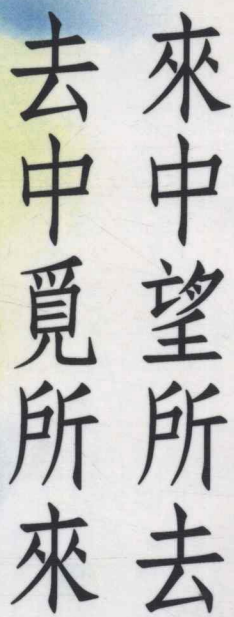 來中望所去
去中覓所來